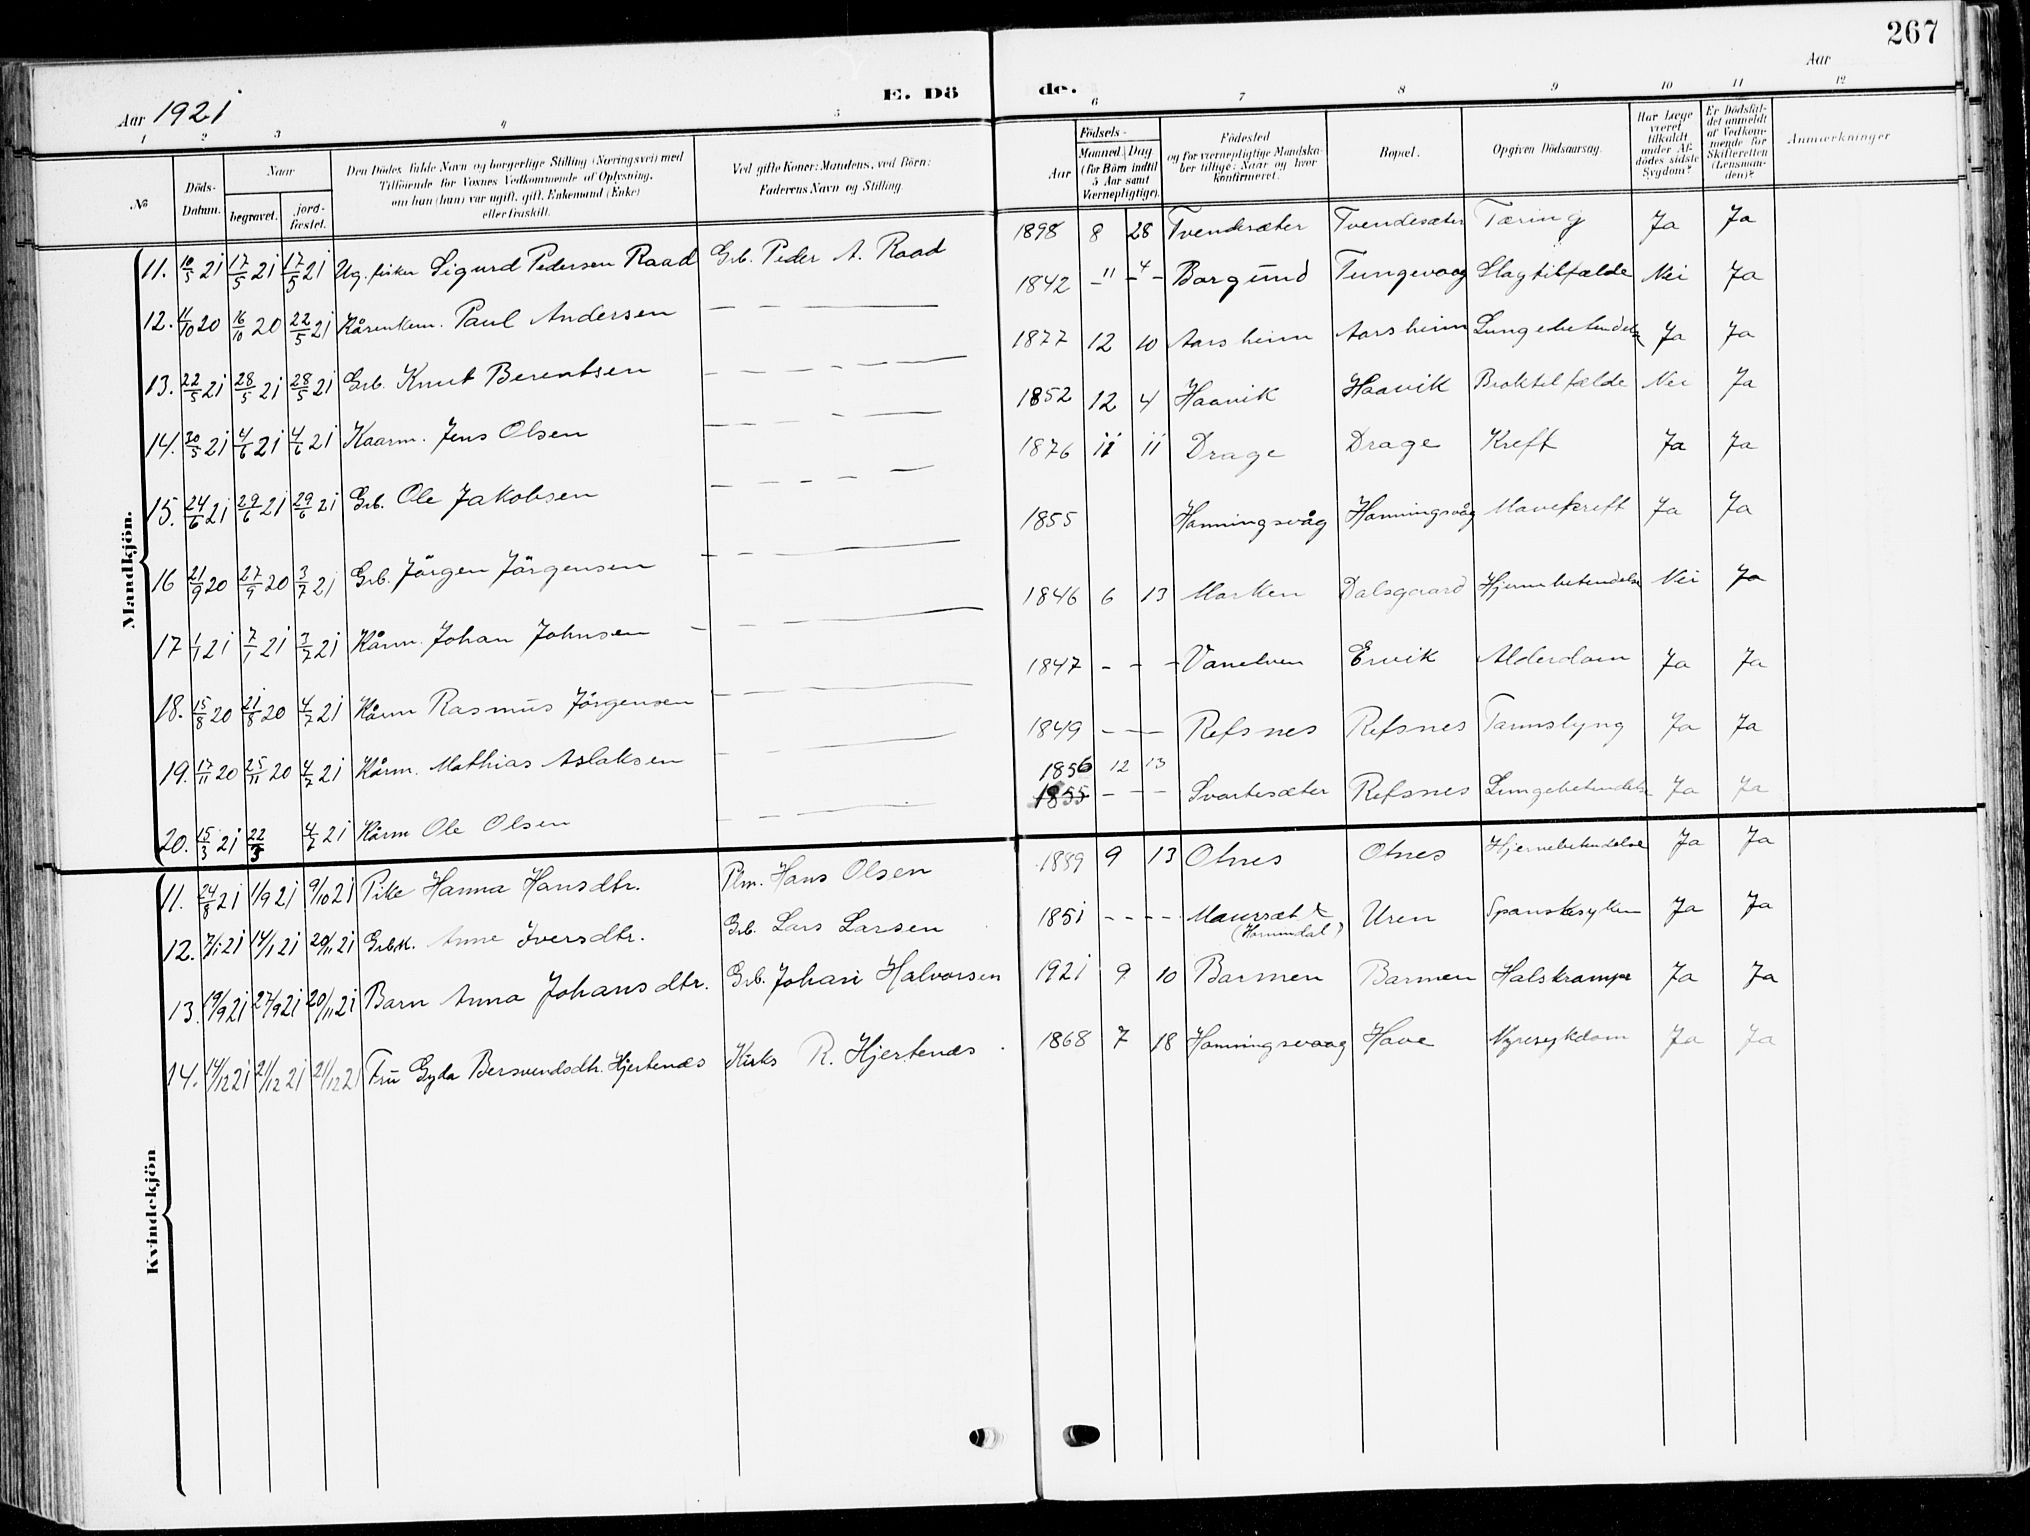 267
Aar 1921
E. Dö de.
Aar
1 2 3 4 5 6 7 8 9 10 11 12
No
Döds-Datum.
Naar
begravet.
jord-fæstet.
Den Dödes fulde Navn og borgerlige Stilling (Næringsvei) med
Tilföiende for Voxnes Vedkommende af Oplysning,
om han (hun) var ugift, gift, Enkemand (Enke)
eller fraskilt.
Ved gifte Koner: Mandens, ved Börn:
Faderens Navn og Stilling.
Födsels-
Aar
Maaned. Dag
(for Börn indtil
5 Aar samt
Værnepligtige).
Födested
og for værnepligtige Mandska-
ber tillige: Naar og hvor
konfirmeret.
Bopæl.
Opgiven Dödsaarsag.
Har Læge
været
tilkaldt
under Af-
dödes sidste
Sygdom?
Er Dödsfal-
det anmeldt
af Vedkom-
mende for
Skifteretten
(Lensman-
den)?
Anmærkninger
Mandkjön.
11. 10/5 21 17/5 21 17/5 21 Ug. fisker Sigurd Pedersen Raad Grb. Peder A. Raad 1898 8 28 Tvendesæter Tvendesæter Tæring Ja Ja
12. 11/10 20 16/10 20 22/5 21 Kårenkem. Paul Andersen — — — 1842 – 11 – 4 – Borgund Tungevaag Slagtilfælde Nei Ja
13. 22/5 21 28/5 21 28/5 21 Grb. Knut Berentsen — — — — — 1877 12 10 Aarsheim Aarsheim Lungebetendelse Ja Ja
14. 30/5 21 4/6 21 4/6 21 Kaarm. Jens Olsen — — — — 1852 12 4 Haavik Haavik Broktilfælde Nei Ja
15. 24/6 21 29/6 21 29/6 21 Grb. Ole Jakobsen — — — — — 1876 11 11 Drage Drage Kreft Ja Ja
16 21/9 20 27/9 20 3/7 21 Grb. Jörgen Jörgensen — — — 1855 Honningsvåg Honningsvåg Mavekreft Ja Ja
17 1/1 21 7/1 21 3/7 21 Kårm. Johan Johnsen — — 1846 6 13 Morken Dalsgaard Hjernebetendelse Nei Ja
18. 15/8 20 21/8 20 4/7 21 Kårm Rasmus Jörgensen — — — 1847 – – – Vanelven Ervik Alderdom Ja Ja
19. 17/11 20 25/11 20 4/7 21 Kårm. Mathias Aslaksen — — — 1849 – – – Refsnes Refsnes Tarmslyng Ja Ja
20. 15/3 21 22/3 4/7 21 Kårm Ole Olsen — — — 1856 12 13 1855 – – – Svartesæter Refsnes Lungebetendelse Ja Ja
Kvindekjön
11. 24/8 21 1/9 21 9/10 21 Pike Hanna Hansdtr. Plm. Hans Olsen 1889 9 13 Otnes Otnes Hjernebetendelse Ja Ja
12. 7/1 21 14/1 21 20/11 21 Grbk. Anne Iversdtr. Grb. Lars Larsen 1851 – – – – Maursæt (Hornindal) Uren Spanskesyken Ja Ja
13. 19/9 21 27/9 21 20/11 21 Barn Anna Johansdtr. Grb. Johan Halvorsen 1921 9 10 Barmen Barmen Halskrampe Ja Ja
14. 14/12 21 21/12 21 21/12 21 Fru Gyda Bersvendsdtr. Hjertenæs Kirks R. Hjertenæs 1868 7 18 Honningsvaag Hove Nyresykdom Ja Ja